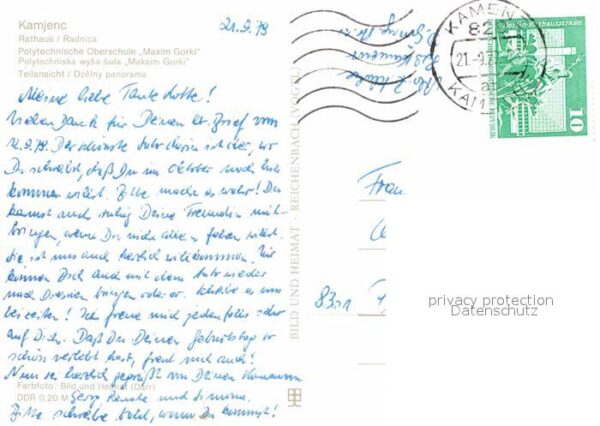 Kamjenc
Rathaus / Radnica
Polytechnische Oberschule „Maxim Gorki"
Polytechniska wyša šula „Maksim Gorki"
Teilansicht / Dźělny panorama
21.9.79
Meine liebe Tante Lotte!
Vielen Dank für Deinen lb. Brief vom
9.79. Der schönste Satz darin ist der, wo
Du schreibst, daß Du im Oktober noch
kommen willst. Bitte mache es wahr! Du
kannst auch ruhig Deine Freundin mit-
bringen, wenn Du nicht allein fahren willst.
Sie ist uns auch herzlich willkommen. Wir
können Dich auch mit dem Auto wieder
nach Dresden bringen oder er. Schreibe es uns
beizeiten! Ich freue mich jedenfalls sehr
auf Dich. Daß Du Deinen Geburtstag so
schön verlebt hast, freut mich auch!
Nun sei herzlich gegrüßt von Deinen Kamenzern
Georg, Renate und Simone.
Bitte schreibe bald, wenn Du kommst!
Farbfoto: Bild und Heimat (Darr)
DDR 0,20 M
BILD UND HEIMAT · REICHENBACH (VOGTL)
KAMENZ
82
21.-9.7
Berlin, Rathausstraße
10
Frau
83
privacy protection
Datenschutz